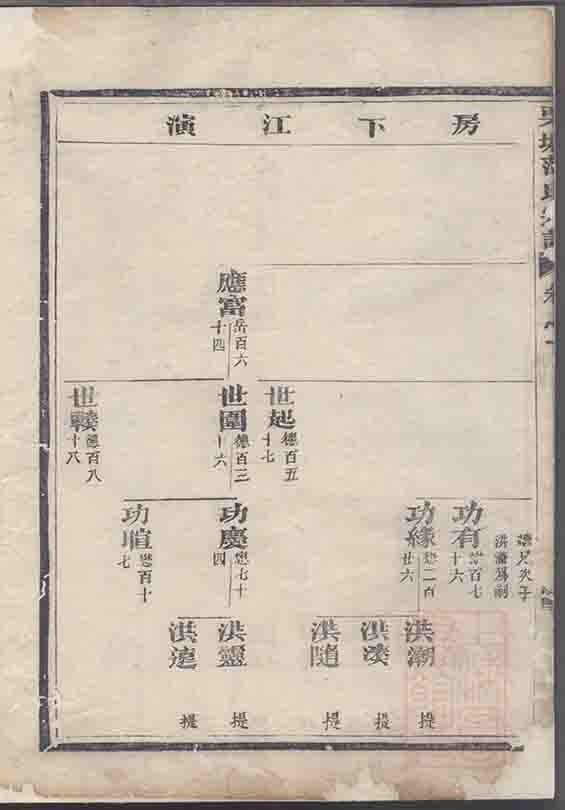 房下江演
應富
岳百六
十四
世起
德百五
十七
世圍
德百三
十六
德百八
十八
繼兄次子
洪濤為嗣
功有
懋百七
十六
功緣
懋二百
廿六
功慶
懋七十
四
功暄
懋百十
七
洪潮
提
洪湊
提
洪隨
提
洪靈
提
洪遠
提